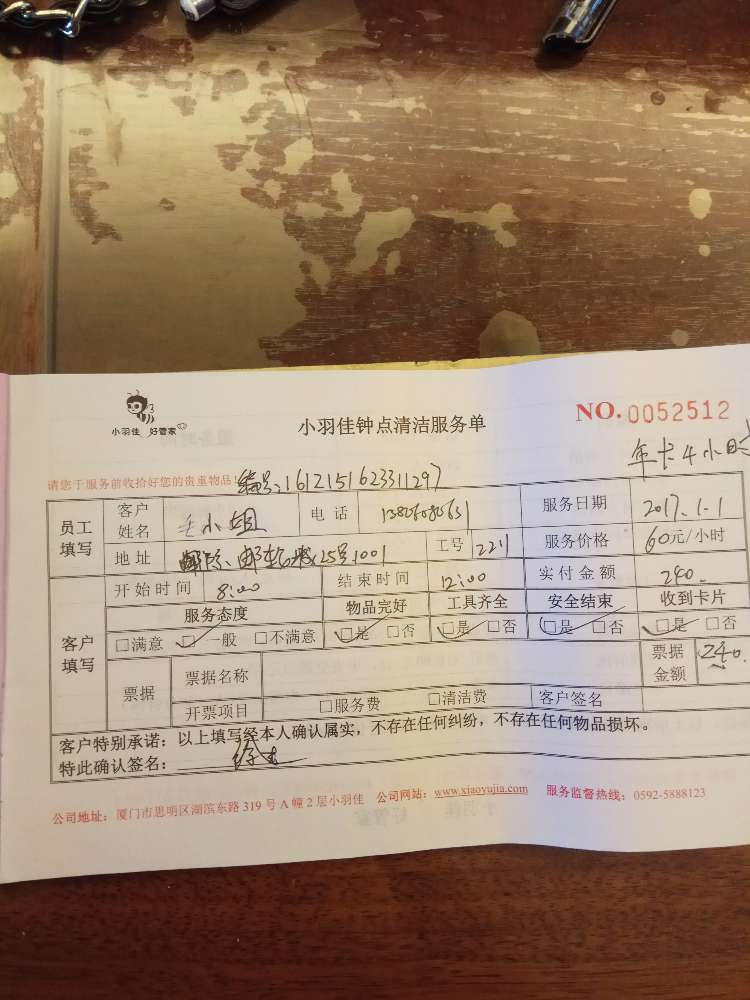 小羽佳 好管家
小羽佳钟点清洁服务单
NO. 0052512
年卡4小时
请您于服务前收拾好您的贵重物品!
编号:1612151623311297
员工填写 客户姓名 小姐 电话 服务日期 2017.1.1
地址 25号1001 工号 2211 服务价格 60元/小时
客户填写 开始时间 8:00 结束时间 12:00 实付金额 240.
服务态度 物品完好 工具齐全 安全结束 收到卡片
□满意 □一般 □不满意 □是 □否 □是 □否 □是 □否 □是 □否
票据 票据名称 票据金额 240.
开票项目 □服务费 □清洁费 客户签名
客户特别承诺:以上填写经本人确认属实,不存在任何纠纷,不存在任何物品损坏。
特此确认签名:
公司地址:厦门市思明区湖滨东路319号A幢2层小羽佳 公司网站:www.xiaoyujia.com 服务监督热线:0592-5888123